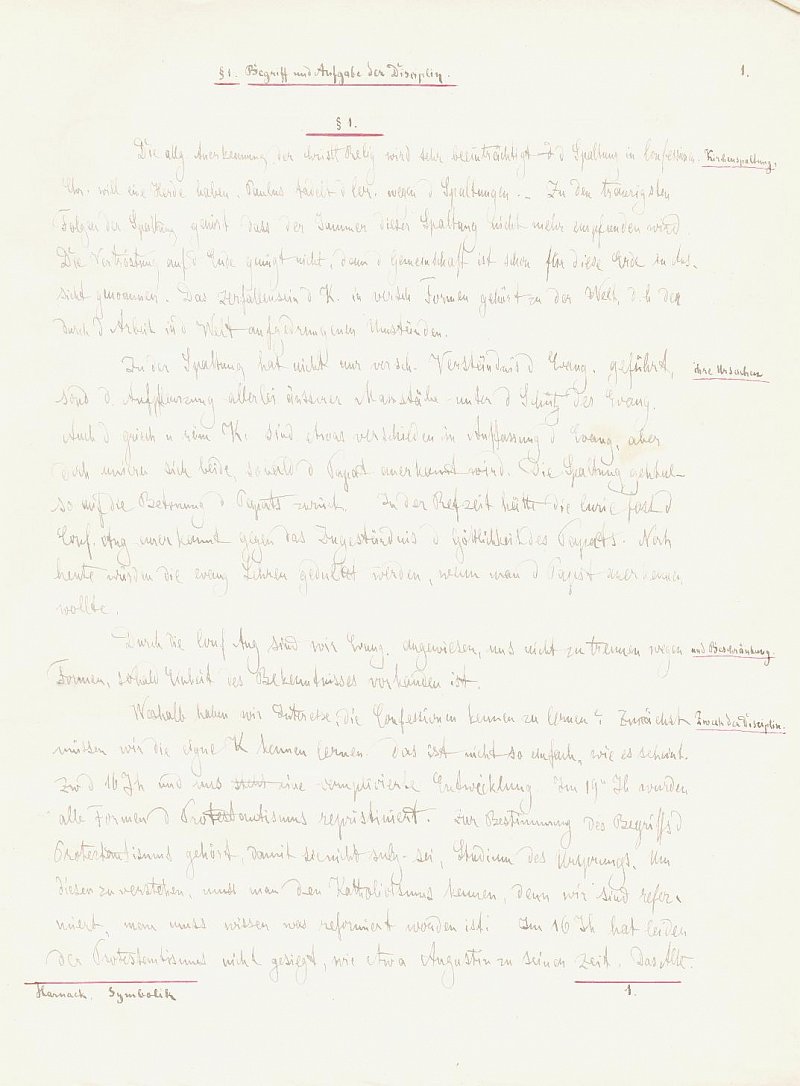 § 1. Begriff und Aufgabe der Disciplin. 1.
§ 1.
Die allg. Anerkennung der christl Relig wird sehr beeinträchtigt d d Spaltung in Confessionen. Kirchenspaltung,
Chr. will eine Herde haben. Paulus tadelt d Cor. wegen d Spaltungen. – Zu den traurigsten
Folgen der Spaltung gehört dass der Jammer dieser Spaltung nicht mehr empfunden wird.
Die Vertröstung auf d Ende genügt nicht, denn d Gemeinschaft ist schon für diese Erde in Aus-
sicht genommen. Das Zerfallensein d K. in versch Formen gehört zu der Welt, d. h den
durch d Arbeit in d Welt aufgedrungenen Umständen.
Zu der Spaltung hat nicht nur versch. Verständnis d Evang. geführt, ihre Ursachen
sond d. Aufpflanzung allerlei äusserer Maasstäbe unter d Schutz des Evang.
Auch d griech u röm K. sind etwas verschieden in Auffassung d Evang, aber
doch unsern sich beide, sobald d Papst anerkannt wird. Die Spaltung geht al-
so auf die Betonung d Papsts zurück. In der Refzeit hätte die Curie fast d
Conf. Aug anerkannt gegen das Zugeständnis d Göttlichkeit des Papsts. Noch
heute würden die evang Lehren geduldet werden, wenn man d Papst anerkennen
wollte.
Durch die Conf Aug sind wir Evang. angewiesen, uns nicht zu trennen wegen und Beschränkung.
Formen, sobald Einheit des Bekenntnisses vorhanden ist.
Weshalb haben wir Interesse, die Confessionen kennen zu lernen? Zunächst Zweck der Disciplin.
müssen wir die eigne K kennen lernen. Das ist nicht so einfach, wie es scheint.
Zw d 16 Jh und uns eine complicierte Entwicklung. Im 19n Jh wurden
alle Formen d Protestantismus repristiniert. Zur Bestimmung des Begriffs d
Protestantismus gehört, damit sie nicht subj. sei, Studium des Ursprungs. Um
diesen zu verstehen, muss man den Katholicismus kennen, denn wir sind refor-
miert, man muss wissen was reformiert worden ist. Im 16 Jh hat leider
der Protestantismus nicht gesiegt, wie etwa Augustin zu seiner Zeit. Das Alte
Harnack. Symbolik 1.